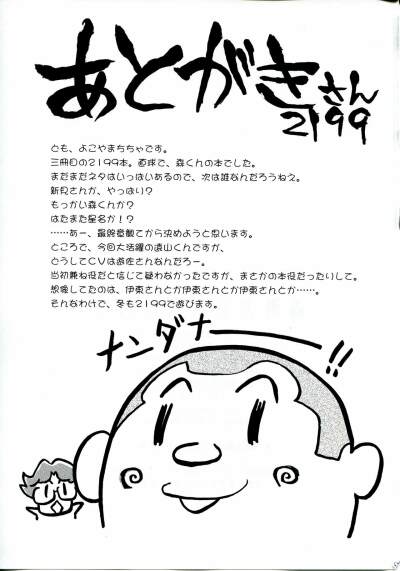 あとがきさん
2199
ども、よこやまちちゃです。
三冊目の2199本。直球で、森くんの本でした。
まだまだネタはいっぱいあるので、次は誰なんだろうねえ。
新見さんか、やっぱり?
もっかい森くんか?
はたまた星名か!?
……あー、最終章観てから決めようと思います。
ところで、今回大活躍の遠山くんですが、
どうしてCVは遊佐さんなんだろー。
当初兼ね役だと信じて疑わなかったですが、まさかの本役だったりして。
想像してたのは、伊東さんとか伊東さんとか伊東さんとか……。
そんなわけで、冬も2199で遊びます。
ナンダナー!!